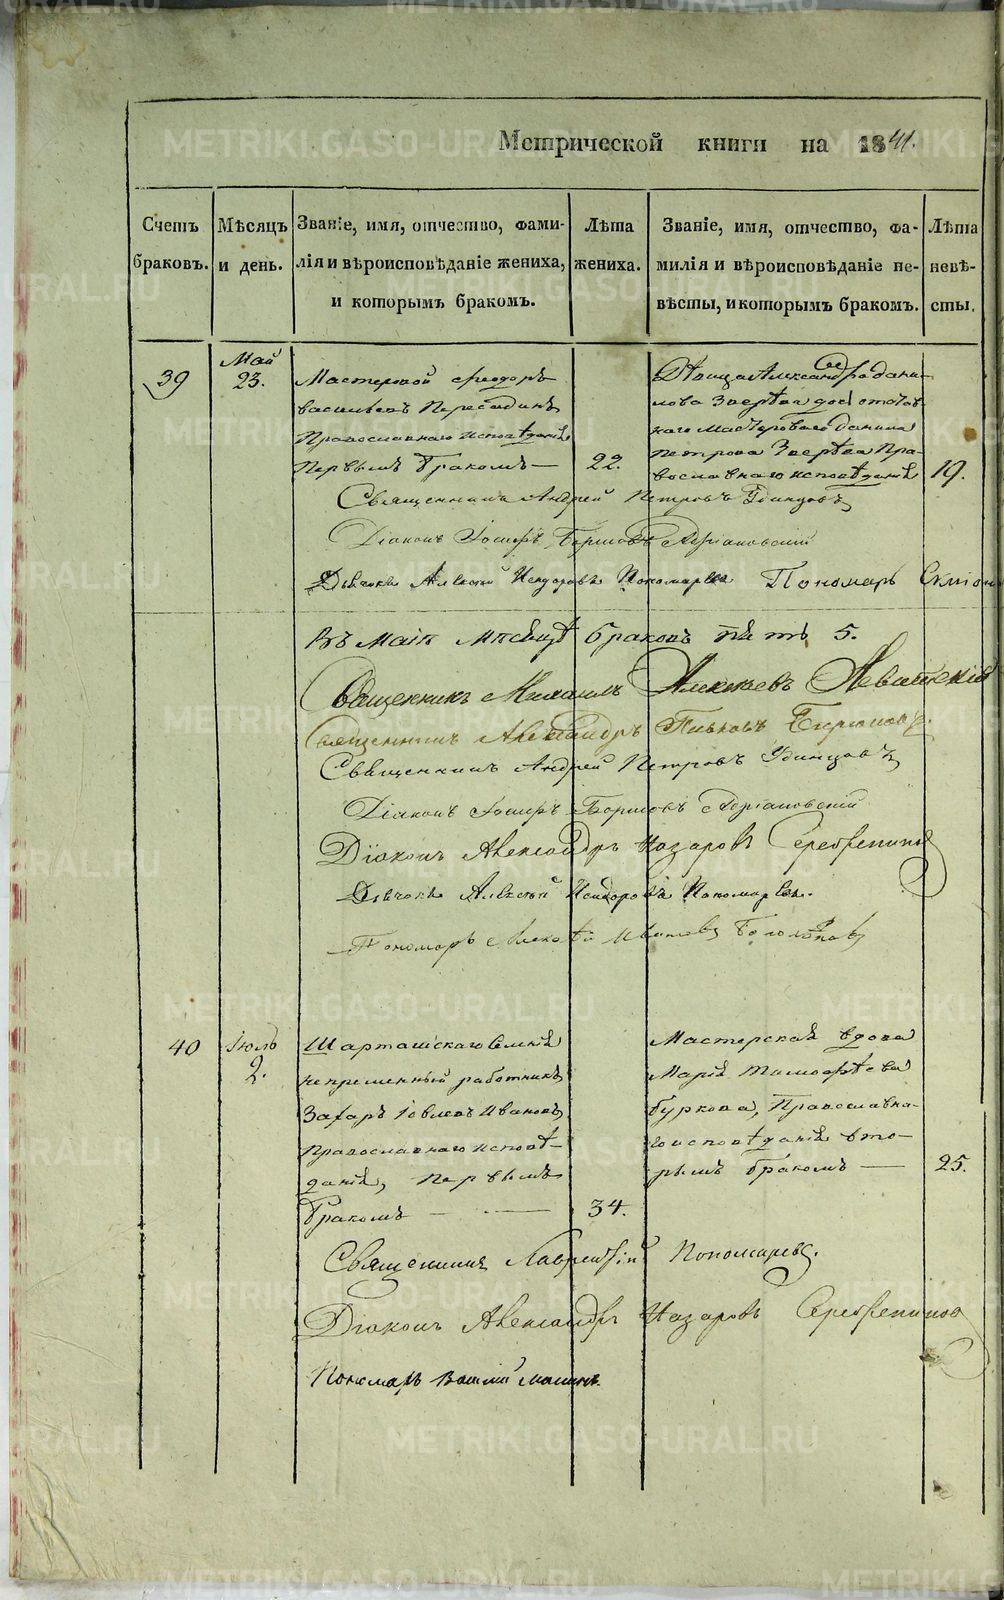 Метрической книги на 1841.
Счетъ браковъ.
Мѣсяцъ и день.
Званіе, имя, отчество, фамилія и вѣроисповѣданіе жениха, и которымъ бракомъ.
Лѣта жениха.
Званіе, имя, отчество, фамилія и вѣроисповѣданіе невѣсты, и которымъ бракомъ.
Лѣта невѣсты.
39
Май
23.
Мастеровой Ѳеодоръ
Васильевъ Пересадинъ
Православнаго исповѣданія
Первымъ бракомъ —
22.
Дѣвица Александра Дани-
лова Звѣрева дочь
наго мастероваго Данила
Петрова Звѣрева Пра-
вославнаго исповѣданія
19.
Священникъ Андрей Петровъ Удинцовъ
Діаконъ Іосифъ Борисовъ Адріановскій
Дьячокъ Алексѣй Исидоровъ Пономаревъ Пономарь
Въ маіѣ мѣсяцѣ браковъ пять 5.
Священникъ Михаилъ Алексѣевъ Левитскій
Священникъ Александръ Павловъ
Священникъ Андрей Петровъ Удинцовъ
Діаконъ Іосифъ Борисовъ Адріановскій
Діаконъ Александръ Назаровъ Серебрениковъ
Дьячокъ Алексѣй Исидоровъ Пономаревъ.
Пономарь Ивановъ
40
Іюль
2.
Шарташскаго селенія
непременный работникъ
Захаръ Іовлевъ Ивановъ,
Православнаго исповѣ-
данія, первымъ
бракомъ — —
34.
Мастерская вдова
Марія Тимофѣева
Буркова, Православна-
го исповѣданія вто-
рымъ бракомъ —
25.
Священникъ Лаврентій Пономаревъ.
Діаконъ Александръ Назаровъ Серебрениковъ
Пономарь Василій
METRIKI.GASO-URAL.RU